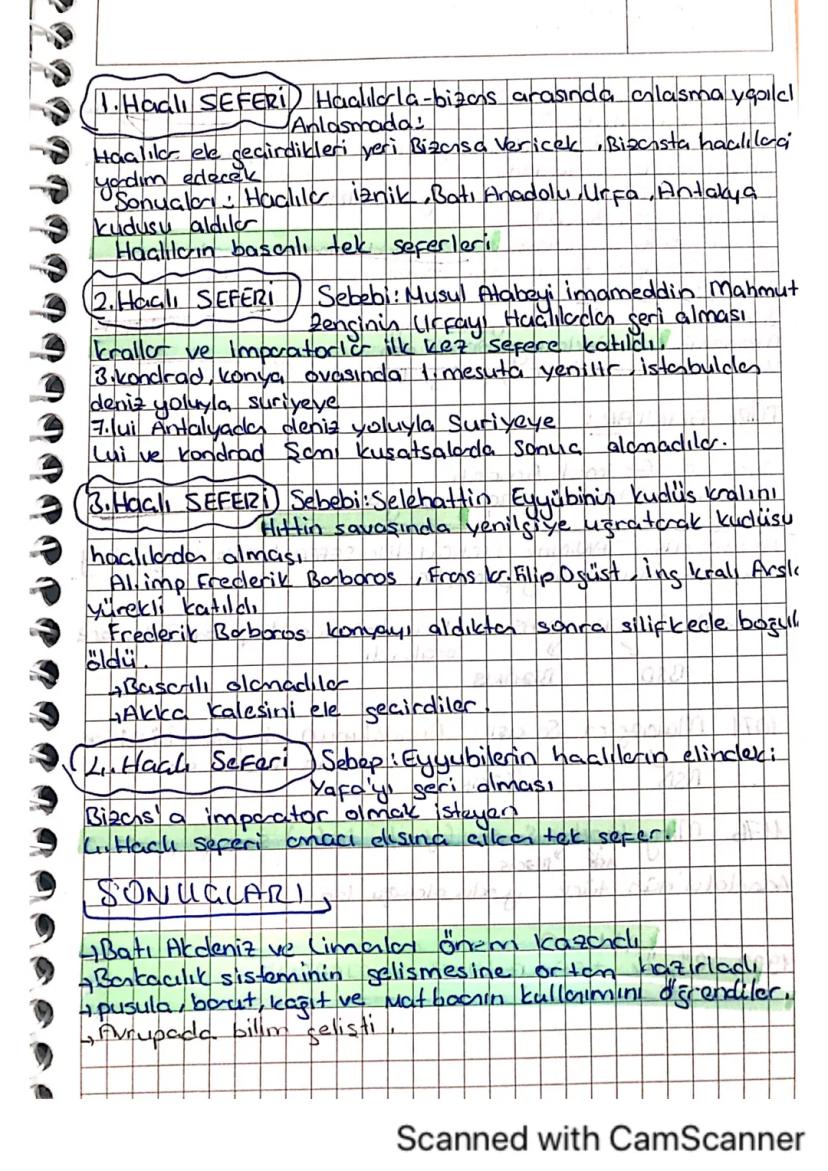 1.Haçlı SEFERİ Haçlılarla-bizans arasında anlasma yapıld
Anlasmada:
Haçlılar ele geçirdikleri yeri Bizansa Vericek, Bizansta haçlılara
yardım edecek
Sonuçları: Haçlılar iznik, Batı Anadolu, Urfa, Antakya
kudusu aldılar
Haçlıların basarılı tek seferleri
2.Haçlı SEFERİ Sebebi: Musul Atabeyi imameddin Mahmut
Zenginin Urfayı Haçlılardan geri alması
krallar ve imparatorlar ilk kez sefere katıldı.
3.kondrad, konya ovasında 1.mesuta yenilir, istanbuldan
deniz yoluyla suriyeye
7.lui Antalyadan deniz yoluyla Suriyeye
Lui ve kondrad Şamı kusatsalarda sonuc alamadılar.
3.Haçlı SEFERİ Sebebi: Selehattin Eyyübinin kudüs kralını
Hittin savasında yenilgiye uğratarak kudüsü
haçlılardan alması
Al.imp Frederik Barboros, Frans kr.Filip Ogüst, ing kralı Arsla
yürekli katıldı
Frederik Barboros konyayı aldıktan sonra silifkede boğul
öldü.
↳Basarılı olamadılar
↳Akka kalesini ele gecirdiler.
4.Haçlı Seferi Sebep: Eyyubilerin haçlıların elindeki
Yafa'yı geri alması
Bizans'a imparator olmak isteyen
4.Haclı seferi amacı dısına çıkan tek sefer.
SONUÇLARI
↳Batı Akdeniz ve limanları önem kazandı
↳Bankacılık sisteminin gelismesine ortam hazırladı
↳pusula, barut, kağıt ve matbaanın kullanımını öğrendiler.
↳Avrupada bilim gelişti.
Scanned with CamScanner